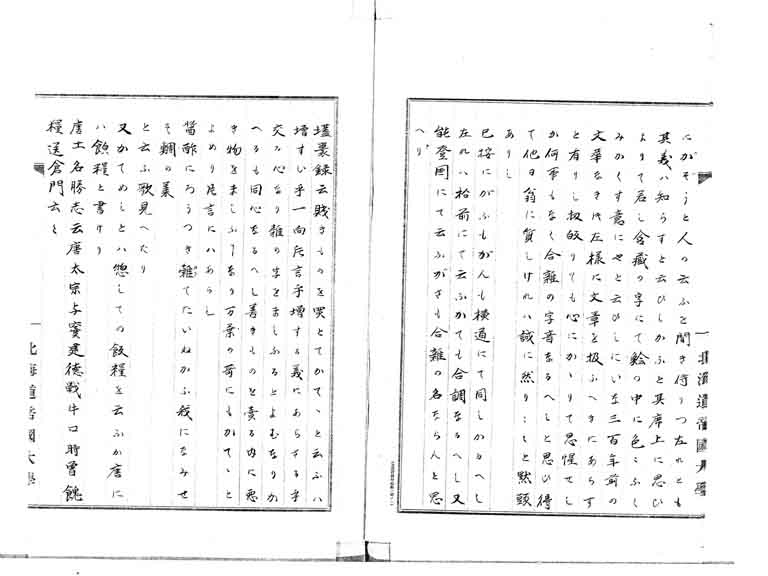 にがそうと人の云ふと聞き侍りつ左れとも
其義ハ知らすと云ひしかふと其席上に思ひ
よりて若し含蔵の字にて鮐の中に色〻ふし
みかくす意にやと云ひしにいな三百年前の
文華なき代左様に文章を扱ふへきにあらす
と有りし故皈りても心にかゝりて思惺てし
か何事もなく合雜の字音なるへしと思ひ得
て他日翁に質しけれハ誠に然り〻〻と黙頭
ありし
已按にがふもがんも横通にて同しかるへし
左れハ拾前にて云ふかても合調なるへし又
能登国にて云ふがさも合雜の名ならんと思
へり
壒嚢録云賎きものを哭とてかてゝと云ふハ
増すい乎一向片言乎増する義にあらする乎
交る心なり雜の字をましふるとよむなりか
へるも同心なるへし善きものを賣る内に悪
き物をましふ〻なり万葉の哥にもかてゝと
よめり片言にハあらし
醤酢にろうつき雜てたいねかふ我になみせ
そ蜩の羹
と云ふ歌見へたり
又かてめしとハ惣しての飯糧を云ふか唐に
ハ餉糧と書けり
唐土名勝志云唐太宗与竇建徳戦牛口時曽餽
糧送倉門云々
北海道帝国大學
北海道帝國大學